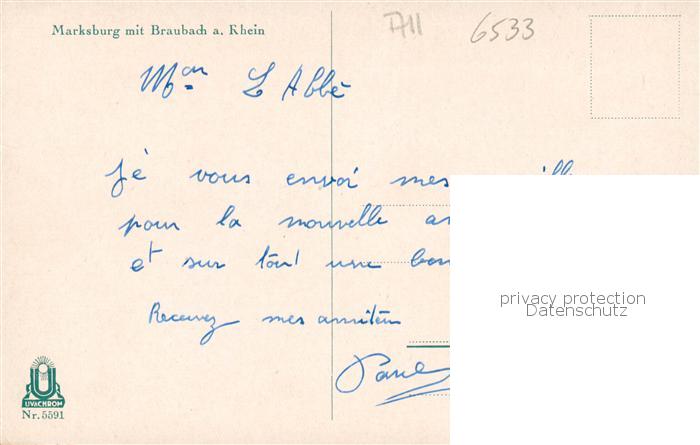 Marksburg mit Braubach a. Rhein
A11 6533
Mon L'Abbé
Jé vous envoi mes
pour la nouvelle an
et sur tout une bon
Recevez mes amitiés
Paul
privacy protection
Datenschutz
UVACHROM
Nr. 5591